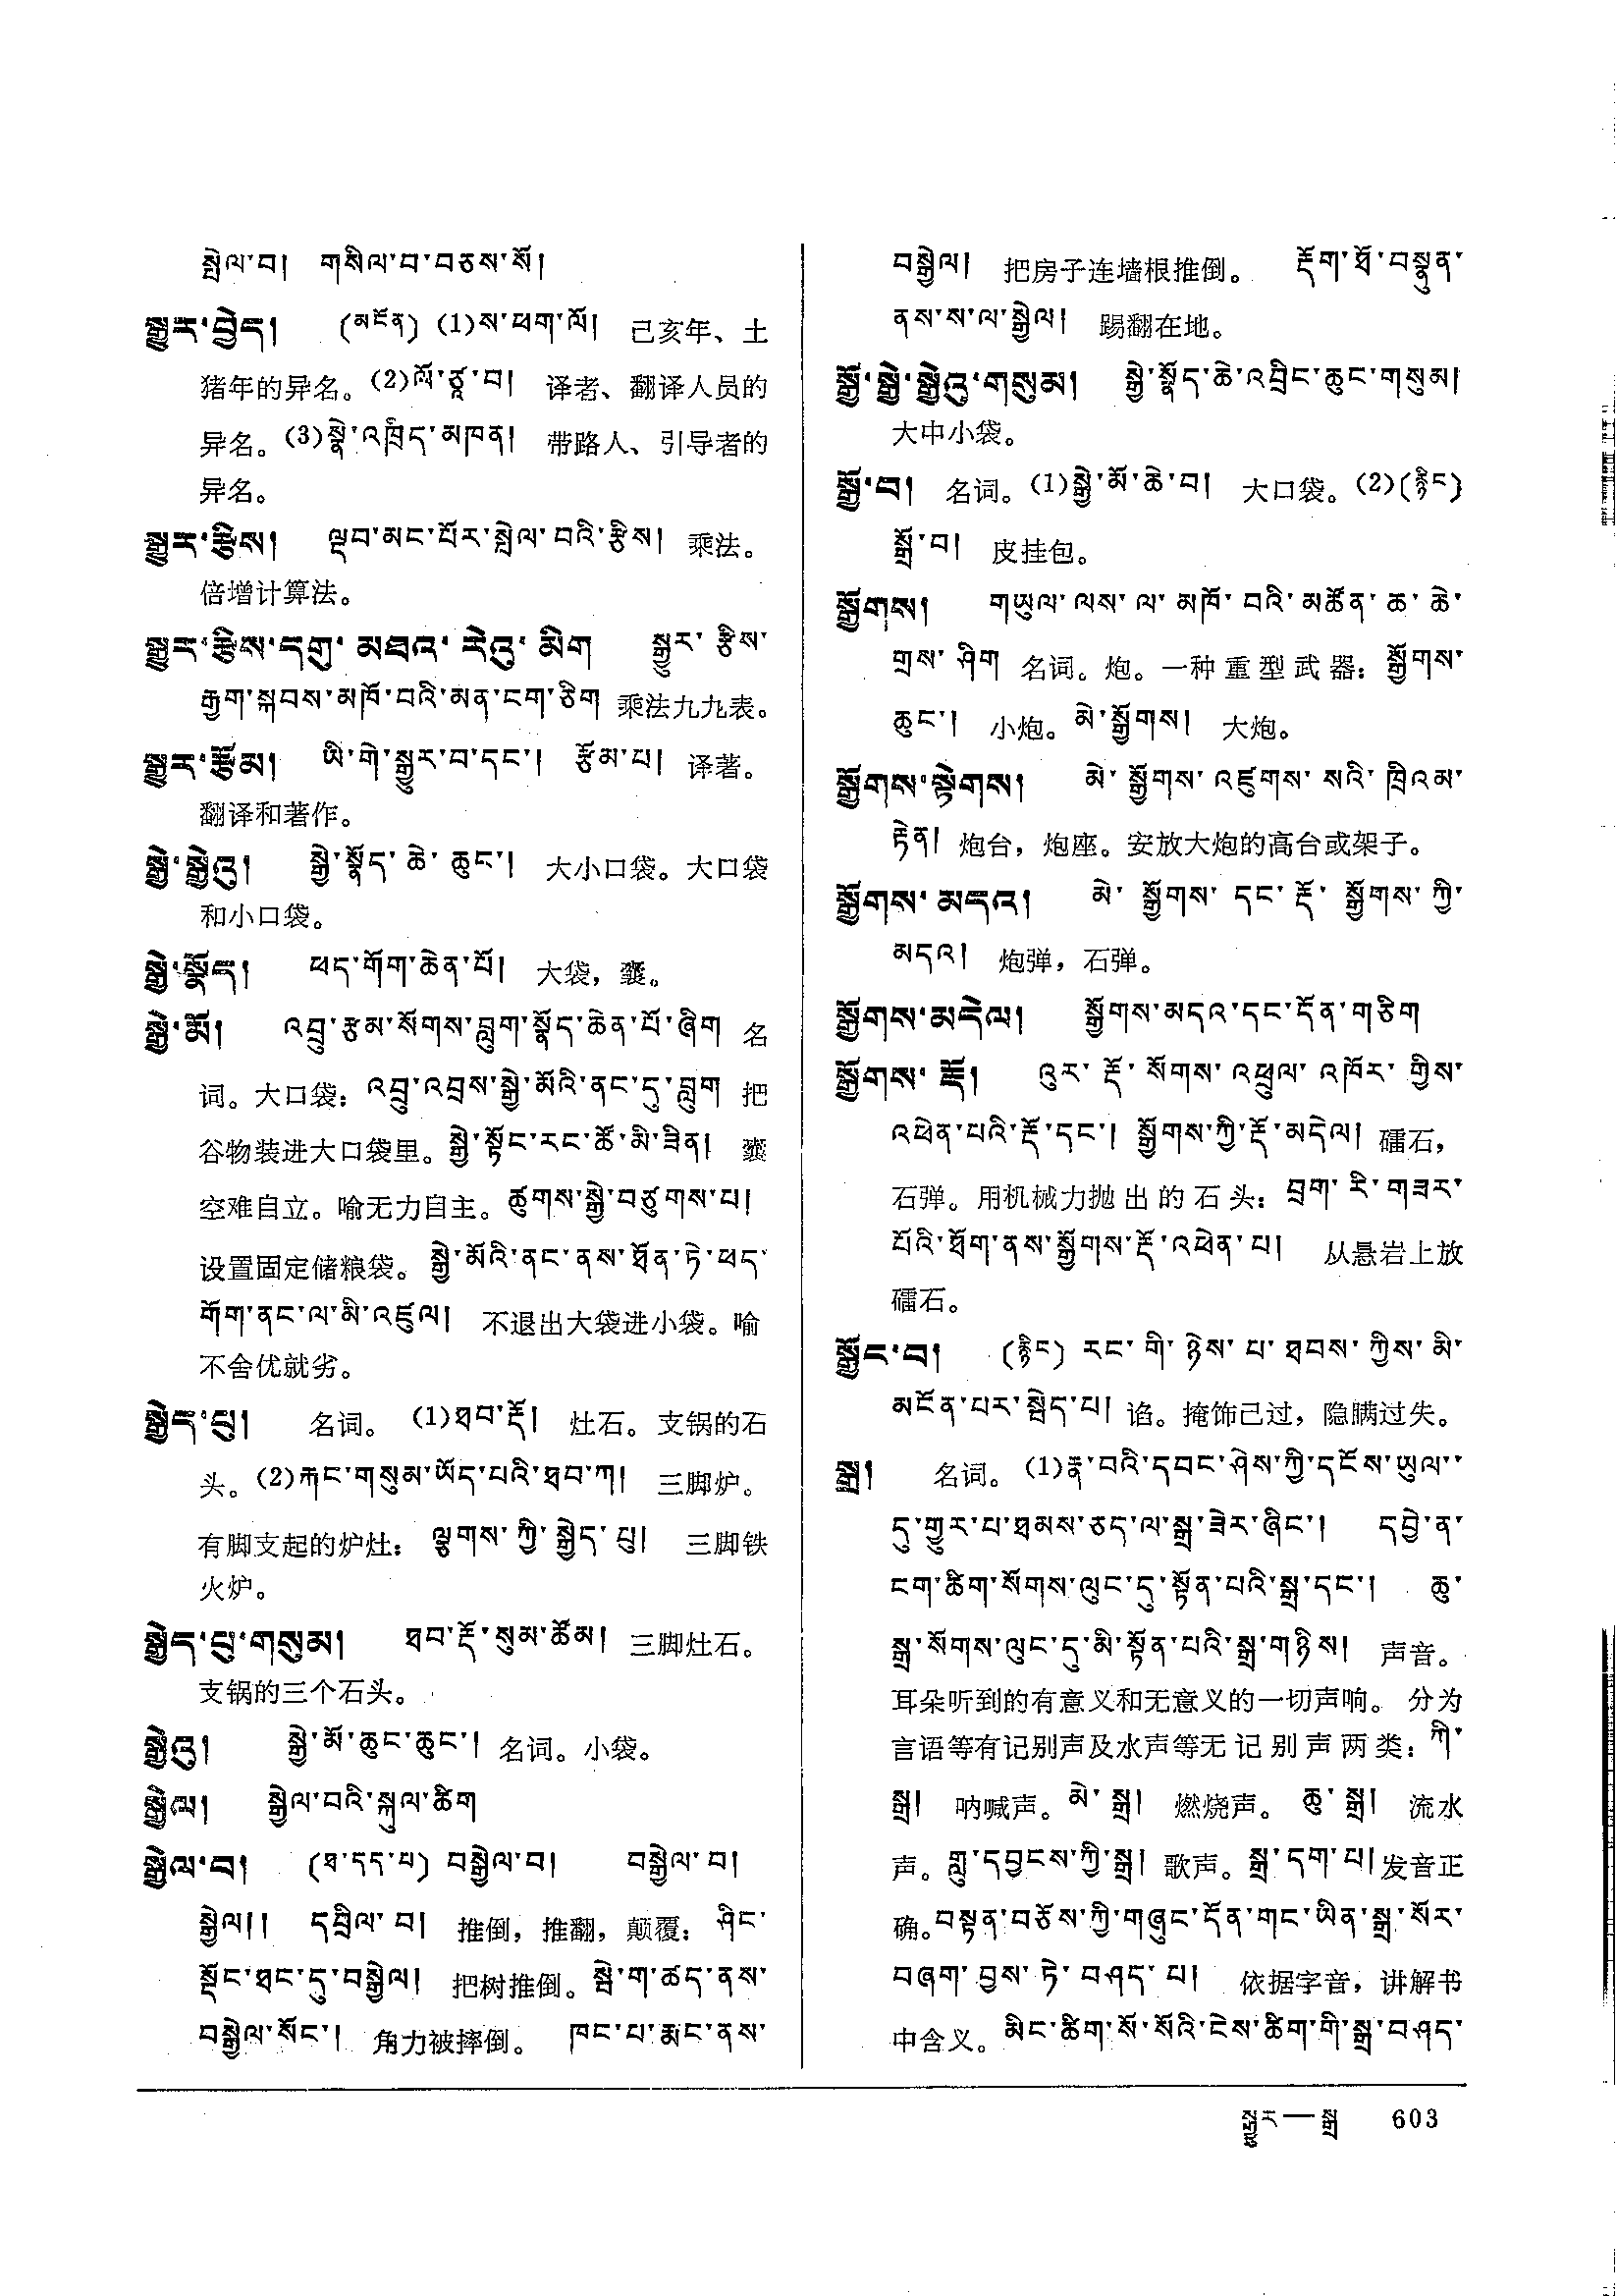 སྤེལ་བ།   གསིལ་བ་བཅས་སོ།
སྒྱུར་བྱེད།   (མངོན) (1)ས་ཕག་ལོ།   己亥年、土
猪年的异名。(2)ལོ་ཙཱ་བ།   译者、翻译人员的
异名。(3)སྣེ་འཁྲིད་མཁན།   带路人、引导者的
异名。
སྒྱུར་རྩིས།   ལྡབ་མང་པོར་སྤེལ་བའི་རྩིས།   乘法。
倍增计算法。
སྒྱུར་རྩིས་དགུ་མཐའ་རེའུ་མིག   སྒྱུར་རྩིས་
རྒྱག་སྐབས་མཁོ་བའི་མན་ངག་ཅིག   乘法九九表。
སྒྱུར་རྩོམ།   ཡི་གེ་སྒྱུར་བ་དང་།   རྩོམ་པ།   译著。
翻译和著作。
སྒྱེ་སྒྱེའུ།   སྒྱེ་སྣོད་ཆེ་ཆུང་།   大小口袋。大口袋
和小口袋。
སྒྱེ་སྣོད།   ཕད་གོག་ཆེན་པོ།   大袋，囊。
སྒྱེ་མོ།   འབྲུ་རྩམ་སོགས་བླུག་སྣོད་ཆེན་པོ་ཞིག   名
词。大口袋：འབྲུ་འབྲས་སྒྱེ་མོའི་ནང་དུ་བླུག   把
谷物装进大口袋里。སྒྱེ་སྟོང་རང་ཚོ་མི་ཟིན།   囊
空难自立。喻无力自主。ཚུགས་སྒྱེ་བཙུགས་པ།
设置固定储粮袋。སྒྱེ་མོའི་ནང་ནས་ཐོན་ཏེ་ཕད་
གོག་ནང་ལ་མི་འཛུལ།   不退出大袋进小袋。喻
不舍优就劣。
སྒྱེད་པུ།   名词。(1)ཐབ་རྡོ།   灶石。支锅的石
头。(2)རྐང་གསུམ་ཡོད་པའི་ཐབ་ཀ།   三脚炉。
有脚支起的炉灶：ལྕགས་ཀྱི་སྒྱེད་པུ།   三脚铁
火炉。
སྒྱེད་པུ་གསུམ།   ཐབ་རྡོ་སུམ་ཚོམ།   三脚灶石。
支锅的三个石头。
སྒྱེའུ།   སྒྱེ་མོ་ཆུང་ཆུང་།   名词。小袋。
སྒྱེལ།   སྒྱེལ་བའི་སྐུལ་ཚིག
སྒྱེལ་བ།   (ཐ་དད་པ) བསྒྱེལ་བ།   བསྒྱེལ་བ།
སྒྱེལ།།   དབྲིལ་བ།   推倒，推翻，颠覆：ཤིང་
སྡོང་ཐང་དུ་བསྒྱེལ།   把树推倒。སྦེ་ག་ཚད་ནས་
བསྒྱེལ་སོང་།   角力被摔倒。   ཁང་པ་རྨང་ནས་
བསྒྱེལ།   把房子连墙根推倒。   རྡོག་ཐོ་བསྣུན་
ནས་ས་ལ་སྒྱེལ།   踢翻在地。
སྒྱོ་སྒྱེ་སྒྱེའུ་གསུམ།   སྒྱེ་སྣོད་ཆེ་འབྲིང་ཆུང་གསུམ།
大中小袋。
སྒྱོ་བ།   名词。(1)སྒྱེ་མོ་ཆེ་བ།   大口袋。(2)(རྙིང)
སྒྲོ་བ།   皮挂包。
སྒྱོགས།   གཡུལ་ལས་ལ་མཁོ་བའི་མཚོན་ཆ་ཆེ་
གྲས་ཤིག   名词。炮。一种重型武器：སྒྱོགས་
ཆུང་།   小炮。མེ་སྒྱོགས།   大炮。
སྒྱོགས་སྟེགས།   མེ་སྒྱོགས་འཛུགས་སའི་ཁྲིའམ་
རྟེན།   炮台，炮座。安放大炮的高台或架子。
སྒྱོགས་མདའ།   མེ་སྒྱོགས་དང་རྡོ་སྒྱོགས་ཀྱི་
མདའ།   炮弹，石弹。
སྒྱོགས་མདེལ།   སྒྱོགས་མདའ་དང་དོན་གཅིག
སྒྱོགས་རྡོ།   འུར་རྡོ་སོགས་འཕྲུལ་འཁོར་གྱིས་
འཕེན་པའི་རྡོ་དང་།   སྒྱོགས་ཀྱི་རྡོ་མདེལ།   礌石，
石弹。用机械力抛出的石头：བྲག་རི་གཟར་
པོའི་ཐོག་ནས་སྒྱོགས་རྡོ་འཕེན་པ།   从悬岩上放
礌石。
སྒྱོང་བ།   (རྙིང) རང་གི་ཉེས་པ་ཐབས་ཀྱིས་མི་
མངོན་པར་སྦེད་པ།   谄。掩饰己过，隐瞒过失。
སྒྲ།   名词。(1)རྣ་བའི་དབང་ཤེས་ཀྱི་དངོས་ཡུལ་་
དུ་གྱུར་པ་ཐམས་ཅད་ལ་སྒྲ་ཟེར་ཞིང་།   དབྱེ་ན་
ངག་ཚིག་སོགས་ལུང་དུ་སྟོན་པའི་སྒྲ་དང་།   ཆུ་
སྒྲ་སོགས་ལུང་དུ་མི་སྟོན་པའི་སྒྲ་གཉིས།   声音。
耳朵听到的有意义和无意义的一切声响。 分为
言语等有记别声及水声等无记别声两类：ཀི་
སྒྲ།   呐喊声。མེ་སྒྲ།   燃烧声。ཆུ་སྒྲ།   流水
声。གླུ་དབྱངས་ཀྱི་སྒྲ།   歌声。སྒྲ་དག་པ།   发音正
确。བསྟན་བཅོས་ཀྱི་གཞུང་དོན་གང་ཡིན་སྒྲ་སོར་
བཞག་བྱས་ཏེ་བཤད་པ།   依据字音，讲解书
中含义。མིང་ཚིག་སོ་སོའི་ངེས་ཚིག་གི་སྒྲ་བཤད་
སྒྱུར—སྒྲ   603